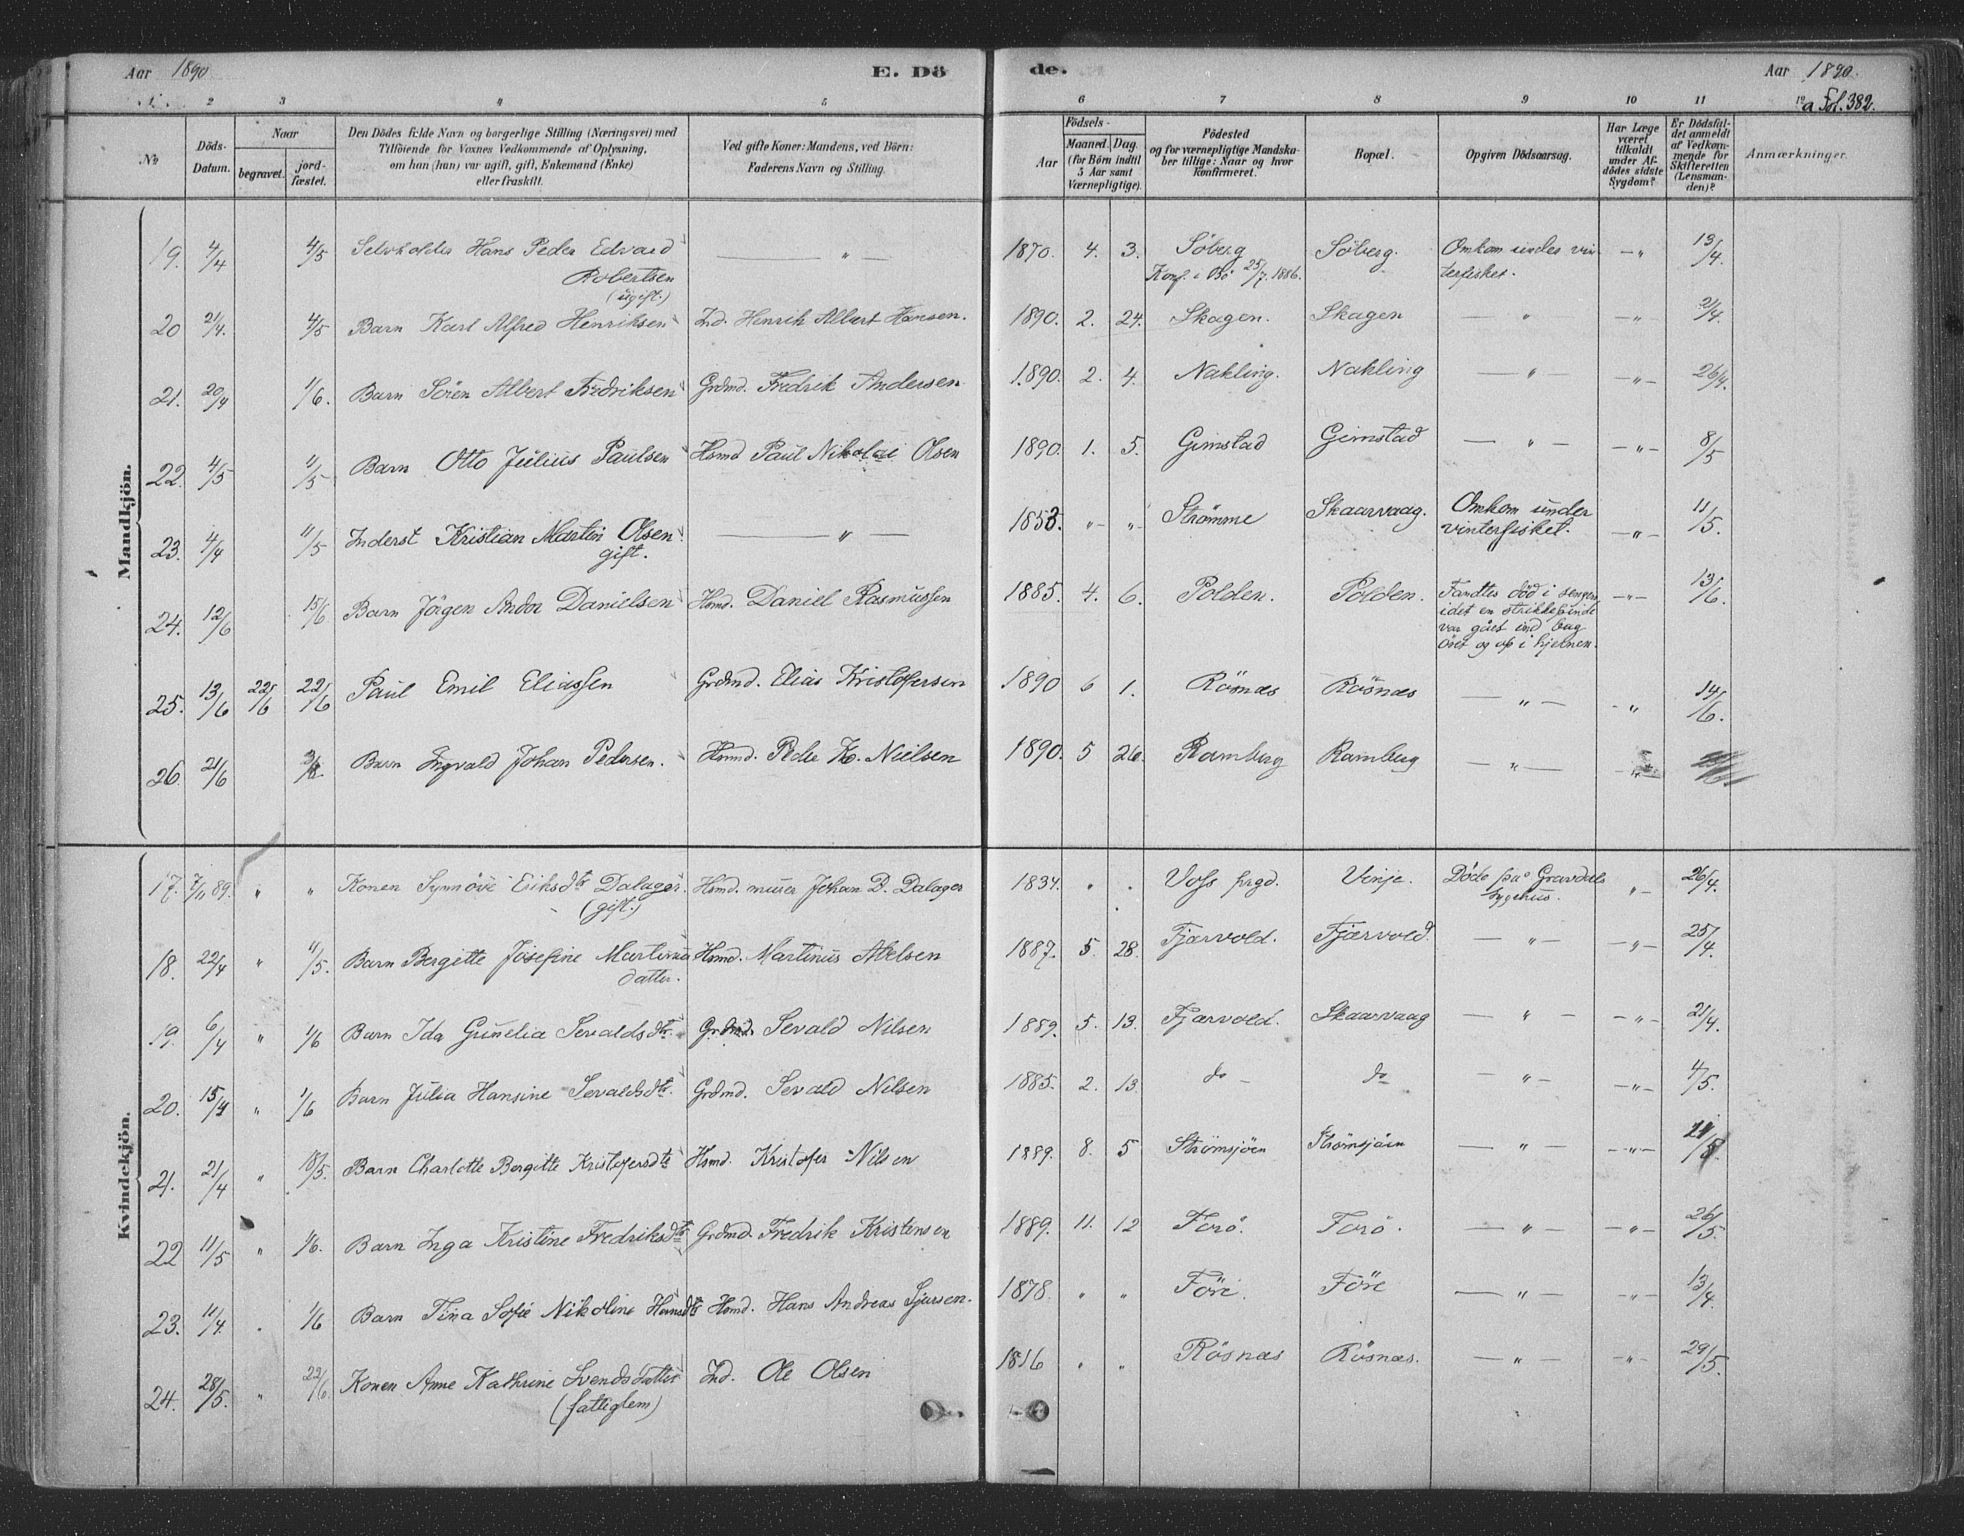 Aar 1890. E. Dö de. Aar 1890.
1. 2 3 4 5 6 7 8 9 10 11 12 a Fol. 382.
No Döds-Datum. Naar begravet. jord-fæstet. Den Dödes fulde Navn og borgerlige Stilling (Næringsvei) med Tilföiende for Voxnes Vedkommende af Oplysning, om han (hun) var ugift, gift, Enkemand (Enke) eller fraskilt. Ved gifte Koner: Mandens, ved Börn: Faderens Navn og Stilling. Födsels- Aar Maaned. Dag. (for Börn indtil 5 Aar samt Værnepligtige). Födested og for værnepligtige Mandska-ber tillige: Naar og hvor Konfirmeret. Bopæl. Opgiven Dödsaarsag. Har Læge været tilkaldt under Af-dödes sidste Sygdom? Er Dödsfal-det anmeldt af Vedkom-mende for Skifteretten (Lensman-den)? Anmærkninger.
Mandkjön.
19. 4/4 4/5 Selvholdes Hans Peder Edvard Robertsen (ugift.) — " — 1870. 4. 3. Söberg Konf. i Bö 25/7 1886. Söberg. Omkom under vinterfisket. — " 13/4.
20 21/4. 4/5 Barn Karl Alfred Henriksen Ind. Henrik Albert Hansen. 1890. 2. 24. Skagen. Skagen — " — — " — 2/4.
21. 20/4 1/6. Barn Sören Albert Fredriksen Grdmd. Fredrik Andersen 1890. 2. 4. Nakling. Nakling — " — — " — 26/4.
22. 4/5 11/5 Barn Otto Julius Paulsen Hsmd Paul Nikolai Olsen 1890. 1. 5. Gimstad Gimstad — " — — " — 8/5
23. 4/4 11/5 Inderst Kristian Martin Olsen gift. — " — 1853. " " Strömme Skaarvaag. Omkom under vinterfisket. — " — 11/5.
24. 12/6 15/6 Barn Jörgen Andor Danielsen Hsmd. Daniel Rasmussen 1885. 4. 6. Polden. Polden. Fandtes död i sengen idet en strikkepinde var gået ind bag öret og op i hjernen. — " — 13/6.
25. 13/6 22/6 22/6 Paul Emil Eliassen Grdmd. Elias Kristofersen 1890 6 1. Rösnæs Rösnæs — " — — " 14/6.
26. 21/6 Barn Ingvald Johan Pedersen. Hsmd. Peder K. Nielsen 1890. 5 26. Ramberg Ramberg — " — — " —
Kvindekjön.
17. 7/11 89. " " Konen Synnöve Eriksdtr Dalager. (gift.) Hsmd. murer Johan D. Dalager 1834. " . Voss prgd. Vinje. Döde paa Gravdals sygehus. " — 26/4.
18. 22/4 " 11/5. Barn Bergitte Josefine Martinus datter. Hsmd. Martinus Abelsen 1887. 5. 28. Fjærvold. Fjærvold. — " — — " — 25/4.
19. 6/4 " 1/6 Barn Ida Gunelia Sevaldsdtr. Grdmd. Sevald Nilsen 1889. 5. 13. Fjærvold. Skaarvaag — " — — " — 21/4.
20. 15/4 " 1/6 Barn Julia Hansine Sevaldsdtr. Grdmd. Sevald Nilsen 1885. 2. 13. do do — " — — " — 4/5.
21. 21/4 " 18/5. Barn Charlotte Bergitte Kristofersdtr Hsmd. Kristofer Nilsen 1889. 8. 5 Strömsjöen Strömsjöen — " — — " —
22 11/5 " 1/6. Barn Inga Kristine Fredriksdtr Grdmd. Fredrik Kristensen 1889. 11. 12 Forö. Forö. — " — — " — 26/5.
23. 11/4. . 1/6 Barn Tina Sofie Nikoline Hansdtr Hsmd. Hans Andreas Sjursen. 1878. " " Före. Före — " — — " — 13/4.
24. 28/5. " 22/6. Konen Anne Kathrine Svendsdatter (fattiglem) Ind. Ole Olsen 1816 " " Rösnæs Rösnæs. — " — — " — 29/5.